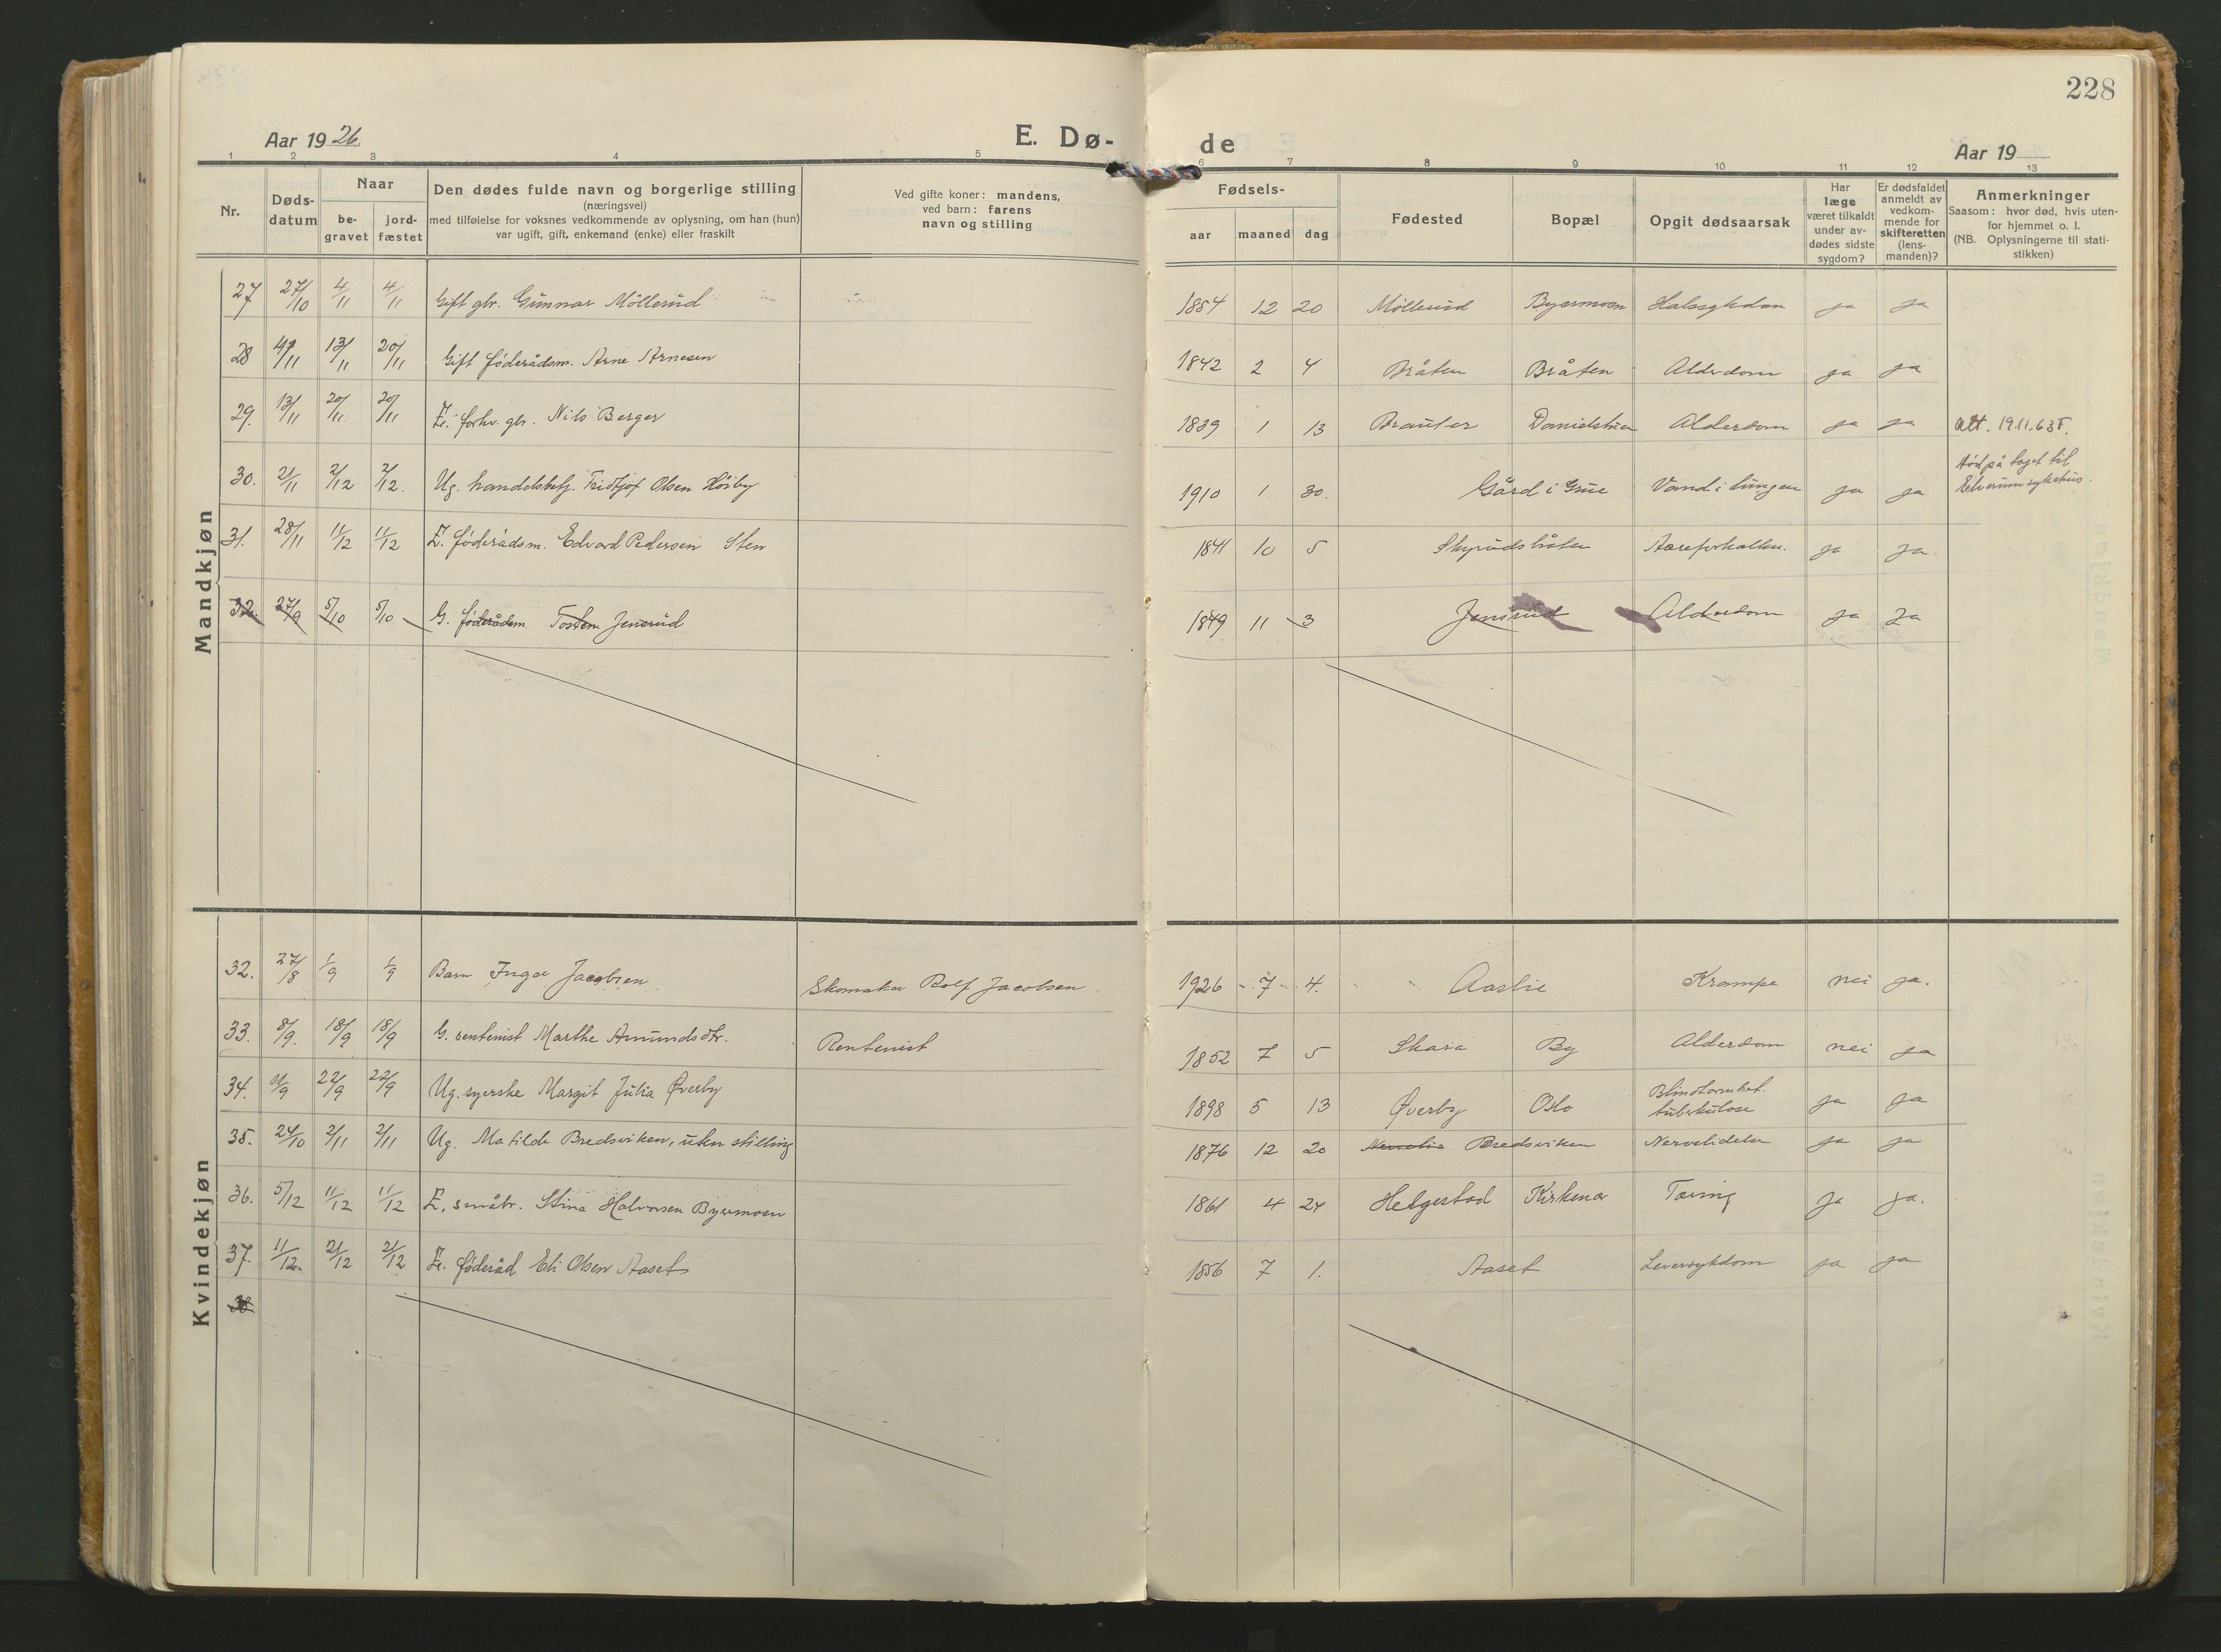 228
Aar 1926.
E. Dø-
de
Aar 19
1 2 3 4 5 6 7 8 9 10 11 12 13
Nr.
Døds-
datum
Naar
be-
gravet
jord-
fæstet
Den dødes fulde navn og borgerlige stilling
(næringsvei)
med tilføielse for voksnes vedkommende av oplysning, om han (hun)
var ugift, gift, enkemand (enke) eller fraskilt
Ved gifte koner: mandens,
ved barn: farens
navn og stilling
Fødsels-
aar maaned dag
Fødested
Bopæl
Opgit dødsaarsak
Har
læge
været tilkaldt
under av-
dødes sidste
sygdom?
Er dødsfaldet
anmeldt av
vedkom-
mende for
skifteretten
(lens-
manden)?
Anmerkninger
Saasom: hvor død, hvis uten-
for hjemmet o. l.
(NB. Oplysningerne til stati-
stikken)
Mandkjøn
27 27/10 4/11 4/11 Gift gbr. Gunnar Möllerud 1854 12 20 Möllerud Byermoen Halssykdom ja ja
28 4/11 13/11 20/11 Gift föderådsm. Arne Arnesen 1842 2 4 Bråten Bråten Alderdom ja ja
29. 13/11 20/11 20/11 E. forhv. gbr. Nils Berger 1839 1 13 Brauter Danielstuen Alderdom ja ja att. 19.11.63
30. 21/11 2/12 2/12. Ug. handelsbetj. Fridtjof Olsen Höiby 1910 1 30. Gård i Grue Vand i lungen ja ja Död på toget til
Elverum sykehus.
31. 28/11 11/12 11/12 E. föderådsm. Edvard Pedersen Sten 1841 10 5 Skyrudsbråten Aareforkalkn. ja ja
32. 27/9 5/10 5/10 G. föderådsm. Tosten Jensrud 1849 11 3 Jensrud Alderdom ja ja
Kvindekjøn
32. 27/8 1/9 1/9 Barn Inger Jacobsen Skomaker Rolf Jacobsen 1926 7 4. Aaslie Krampe nei ja.
33. 8/9. 18/9 18/9 G. rentenist Marthe Amundsdtr. Rentenist 1852 7 5 Skara By Alderdom nei ja
34. 11/9 22/9 22/9 Ug. syerske Margit Julia Øverby 1898 5 13 Øverby Oslo Blindtarmbet.
tuberkulose ja ja
35. 24/10 2/11 2/11 Ug. Matilde Bredsviken, uten stilling 1876 12 20 Bredsviken Nervelidelse ja ja
36. 5/12 11/12 11/12 E. småbr. Stina Halvorsen Byermoen 1861 4 24 Helgestad Kirkenær Tæring ja ja.
37. 11/12. 21/12 21/12 E. föderåd Eli Olsen Aaset 1856 7 1. Aaset Leversykdom ja ja
38